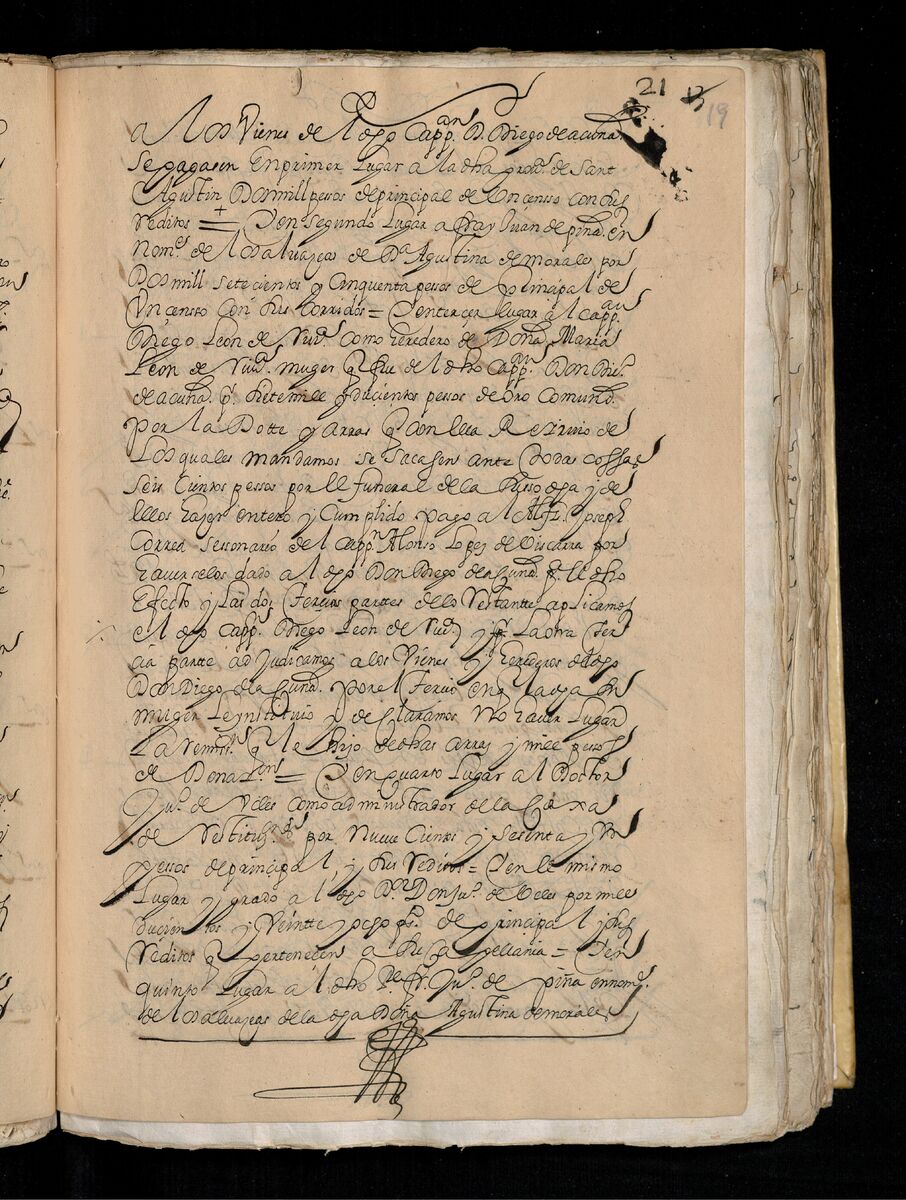 21 19
a los Vienes del dho Capp.an D. Diego de acuña.
se pagasen En primer Lugar a la dha prou.a de Sant
Agustin Dos mill pesos de principal de Un censso con sus
Reditos = Y en segundo Lugar a fray Juan de piña. en
nom.e de los aluaçeas de D.a Agustina de morales por
Dos mill setecientos y Cinquenta pesos de prinçipal de
Un censso Con sus Corridos = Y en terçer lugar a el capp.an
Diego Leon de como heredero de Doña Maria
Leon de muger q fue del dho Capp.an Don Di.o
de acuña. p.r siete mill y duçientos pessos de oro comun
por la Dotte y arras q con ella Reciuio de
Los quales mandamos se sacasen ante todas cossas
seis Cientos pessos por el funeral de la susso dha y de
ellos haser entero y Cumplido pago a el Alf.z Joseph
Correa sessonario del Capp.n Alonso Lopez de Viscarra por
hauerselos dado a el dho Don Diego de acuña. p.a el dho
Efecto y Las dos terçias parttes de lo Restante aplicamos
a el dho capp.n Diego Leon de y la otra ter
cia partte adjudicamos a los Vienes y herederos del dho
Don Diego de acuña. por el terçio en q la dha su
muger Le ynstituio y declaramos no hauer Lugar
La remiss.on q le hiso de dhas arras y mill pessos
de Donaz.on = Y en quarto Lugar a el Doctor
Ju.o de Veles como administrador de la Caxa
de Restituz.es por Nueve Cientos y sesenta y Un
pessos de principal, y sus Reditos = Y en el mismo
Lugar y grado a el dho D.r Don Ju.o de Veles por mill
duçientos y Veintte pessos de principal y sus
Reditos q pertenecen a su Capellania = Y en
quinto Lugar a el dho P.e fr. Ju.o de piña en nom.e
de los aluaçeas de la dha Doña Agustina de morales